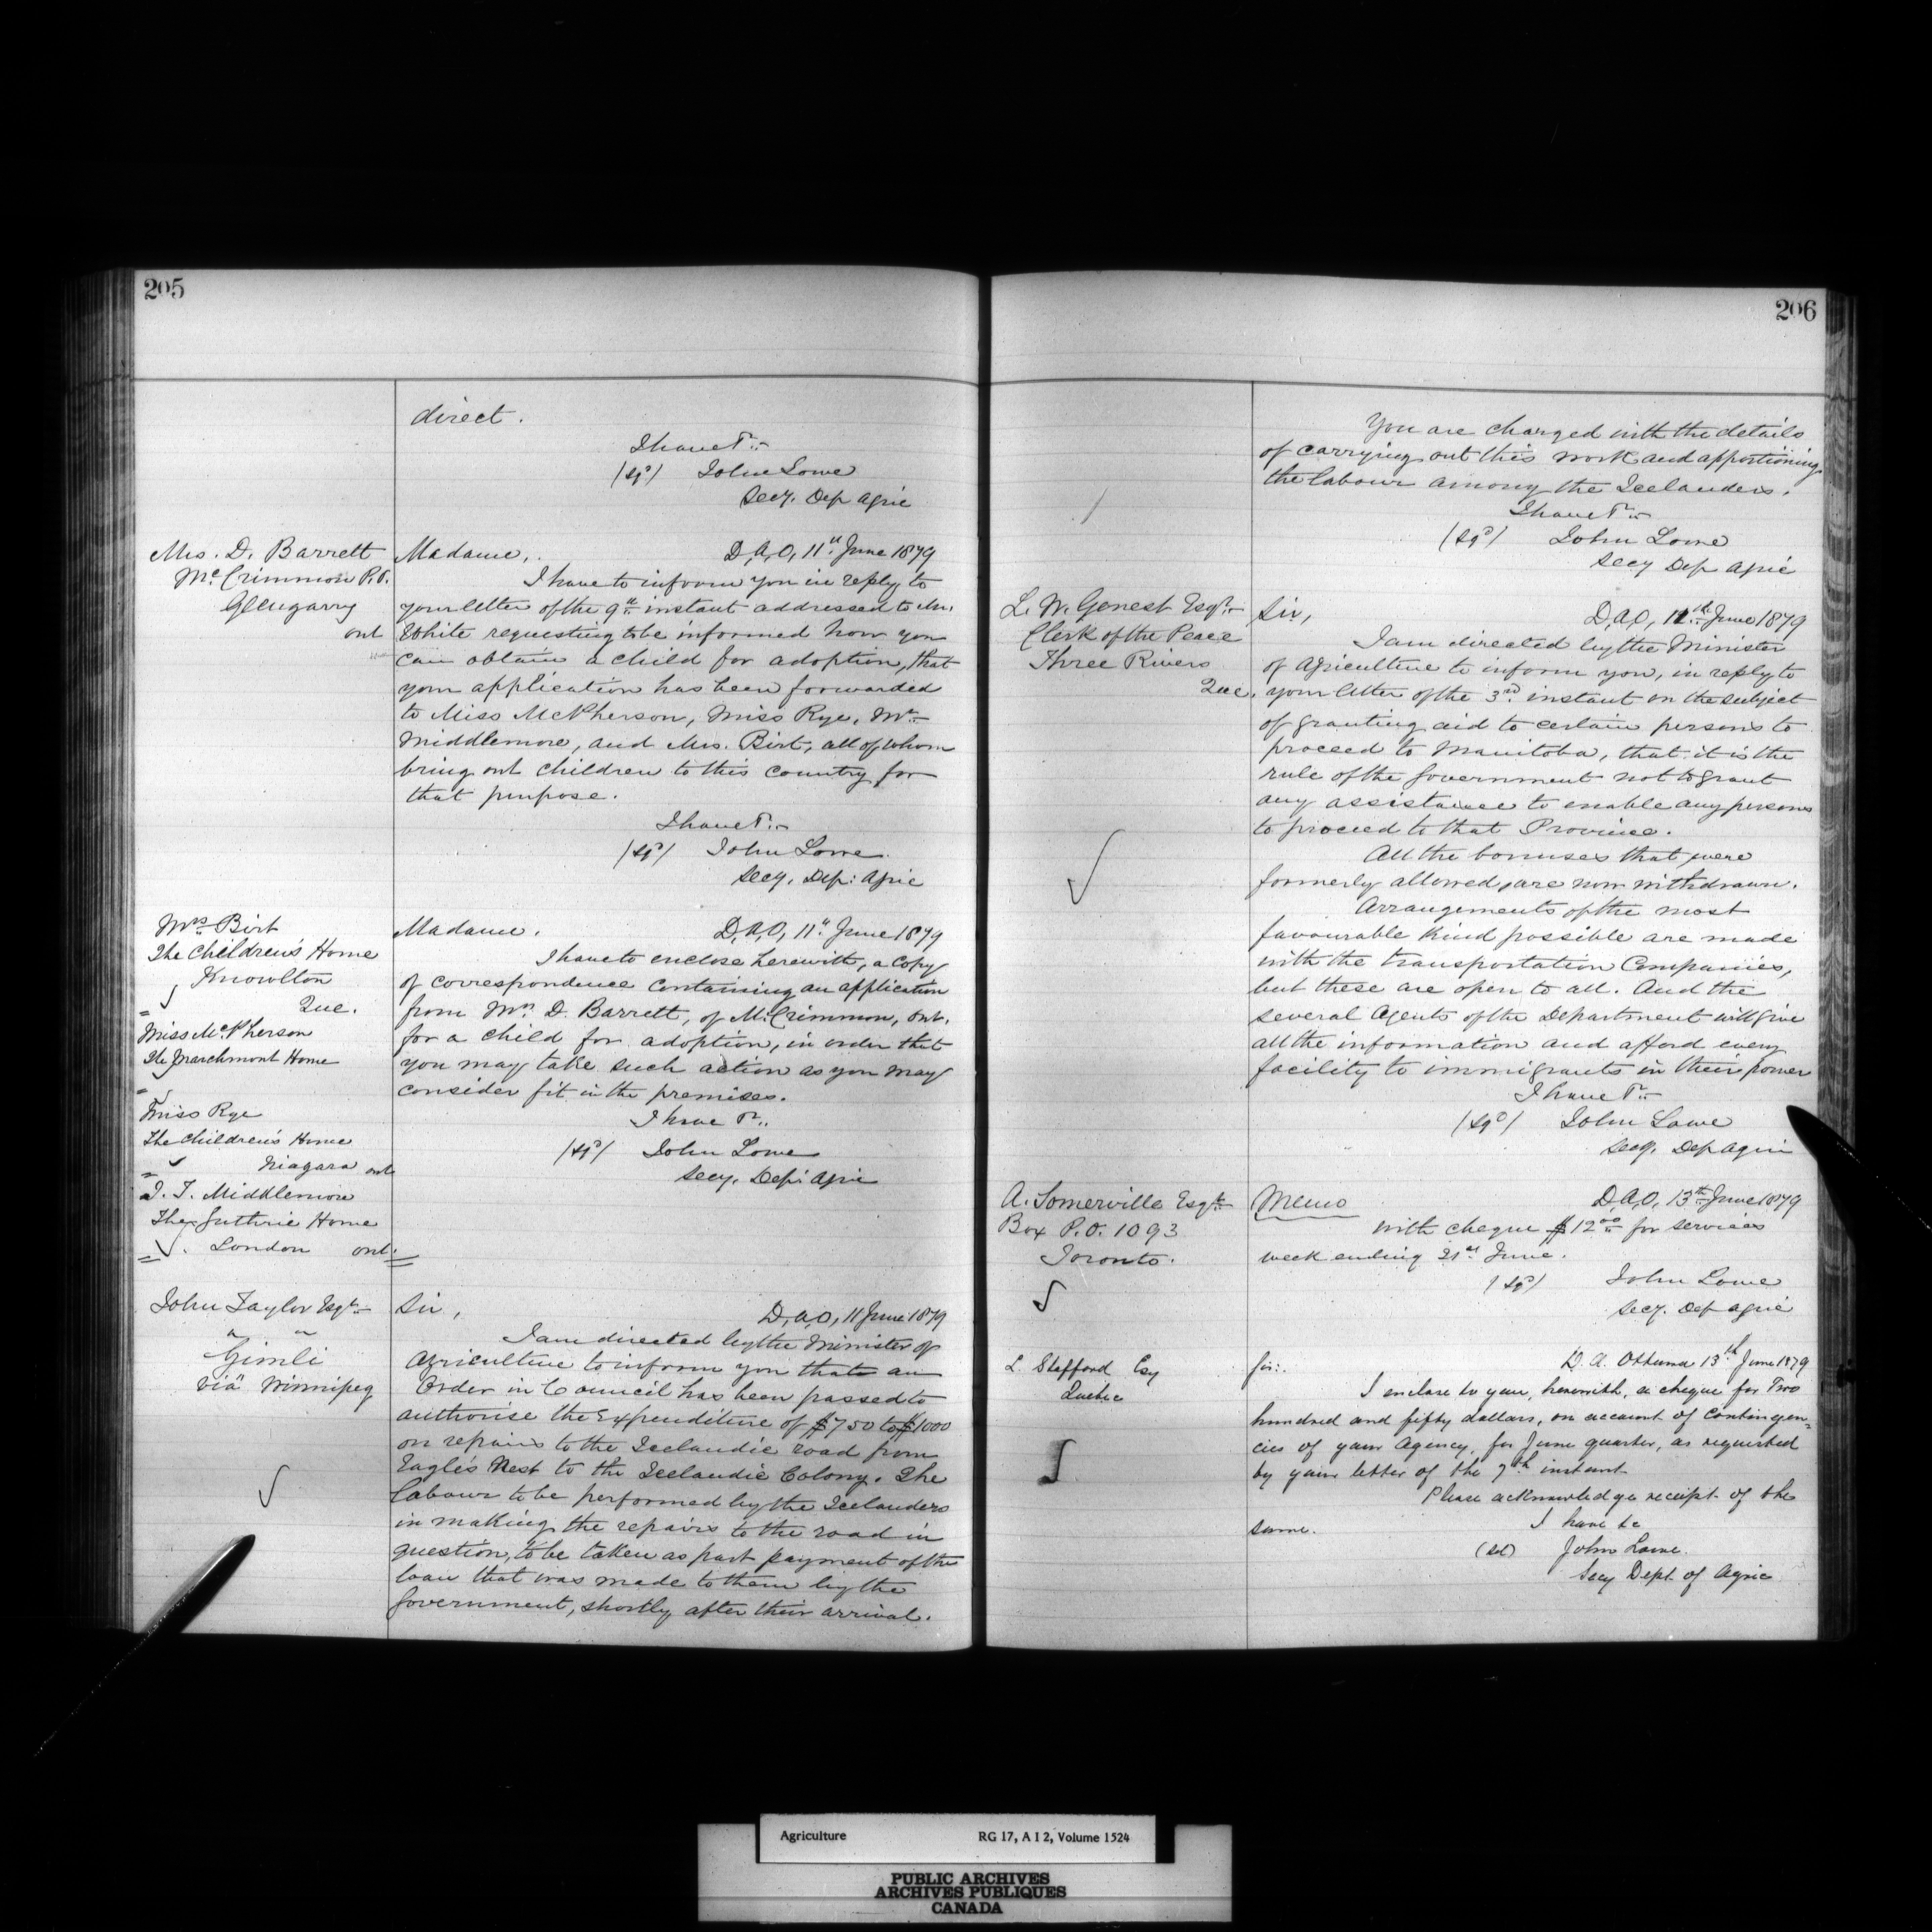 205
direct.
I have &c.
(Sgd) John Lowe
Secy. Dep Agric
Mrs. D. Barrett
McCrimmon P.O.
Glengarry
Ont
Madame, D,A,O, 11th June 1879
I have to inform you in reply to
your letter of the 9th instant addressed to Mr.
White requesting to be informed how you
can obtain a child for adoption, that
your application has been forwarded
to Miss McPherson, Miss Rye, Mr.
Middlemore, and Mrs. Birt, all of whom
bring out children to this country for
that purpose.
I have &c.
(Sgd) John Lowe
Secy. Dep: Agric
Mrs Birt
The Children's Home
Knowlton
Que.
Miss McPherson
The Marchmont Home
Miss Rye
The Children's Home
Niagara Ont
J. T. Middlemore
The Guthrie Home
London Ont.
Madame. D,A,O, 11" June 1879
I have to enclose herewith, a Copy
of correspondence containing an application
from Mrs D. Barrett, of McCrimmon, Ont.
for a child for adoption, in order that
you may take such action as you may
consider fit in the premises.
I have &c..
(Sgd) John Lowe
Secy. Dep: Agric
John Taylor Esqr
Gimli
via Winnipeg
Sir, D,A,O, 11 June 1879
I am directed by the Minister of
Agriculture to inform you that an
Order in Council has been passed to
authorise the Expenditure of $750 to $1000
on repairs to the Icelandic road from
Eagle's Nest to the Icelandic Colony. The
labour to be performed by the Icelanders
in making the repairs to the road in
question, to be taken as part payment of the
loan that was made to them by the
Government, shortly after their arrival.
206
You are charged with the details
of carrying out this work and apportioning
the labour among the Icelanders.
I have &c.
(Sgd) John Lowe
Secy Dep Agric
L. W. Genest Esqr.
Clerk of the Peace
Three Rivers
Que.
Sir, D,A,O, 12th June 1879
I am directed by the Minister
of Agriculture to inform you, in reply to
your letter of the 3rd instant on the subject
of granting aid to certain persons to
proceed to Manitoba, that it is the
rule of the Government not to grant
any assistance to enable any persons
to proceed to that Province.
All the bonuses that were
formerly allowed, are now withdrawn.
Arrangements of the most
favourable kind possible are made
with the transportation Companies,
but these are open to all. And the
several Agents of the Department will give
all the information and afford every
facility to immigrants in their power
I have &c.
(Sgd) John Lowe
Secy. Dep Agric
A. Somerville Esqr.
Box P.O. 1093
Toronto.
Memo D,A,O, 13th June 1879
with cheque $12.00 for services
week ending 21st June.
(Sgd) John Lowe
Secy. Dep Agric
L. Stafford Esq
Quebec
Sir:. D. A. Ottawa 13th June 1879
I enclose to you, herewith, a cheque for Two
hundred and fifty dollars, on account of Contingen=
cies of your Agency, for June quarter, as requested
by your letter of the 7th instant
Please acknowledge receipt of the
same.
I have &c
(Sd) John Lowe.
Secy Dept. of Agric
Agriculture RG 17, A I 2, Volume 1524
PUBLIC ARCHIVES
ARCHIVES PUBLIQUES
CANADA